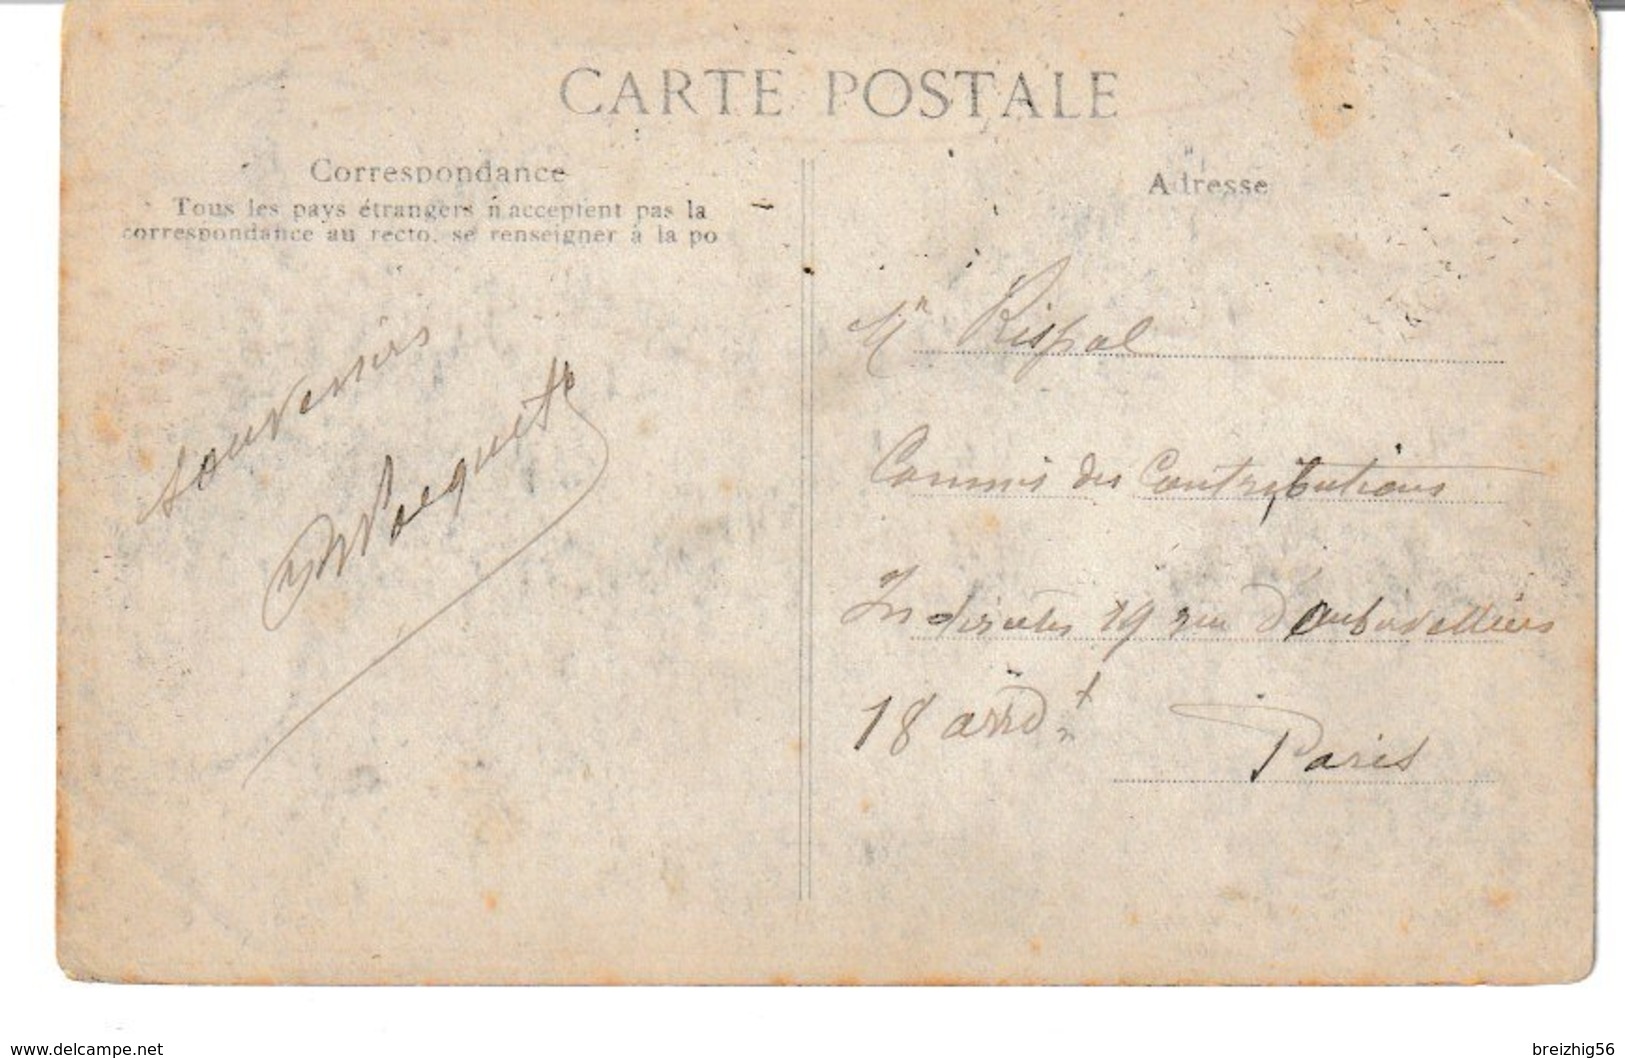 CARTE POSTALE
Correspondance
Tous les pays étrangers n'acceptent pas la
correspondance au recto, se renseigner à la po
souvenirs
Adresse
Mr Rispal
Commis des Contributions
Indirectes 19 rue d'Aubervilliers
18 arrdt
Paris
www.delcampe.net
breizhig56